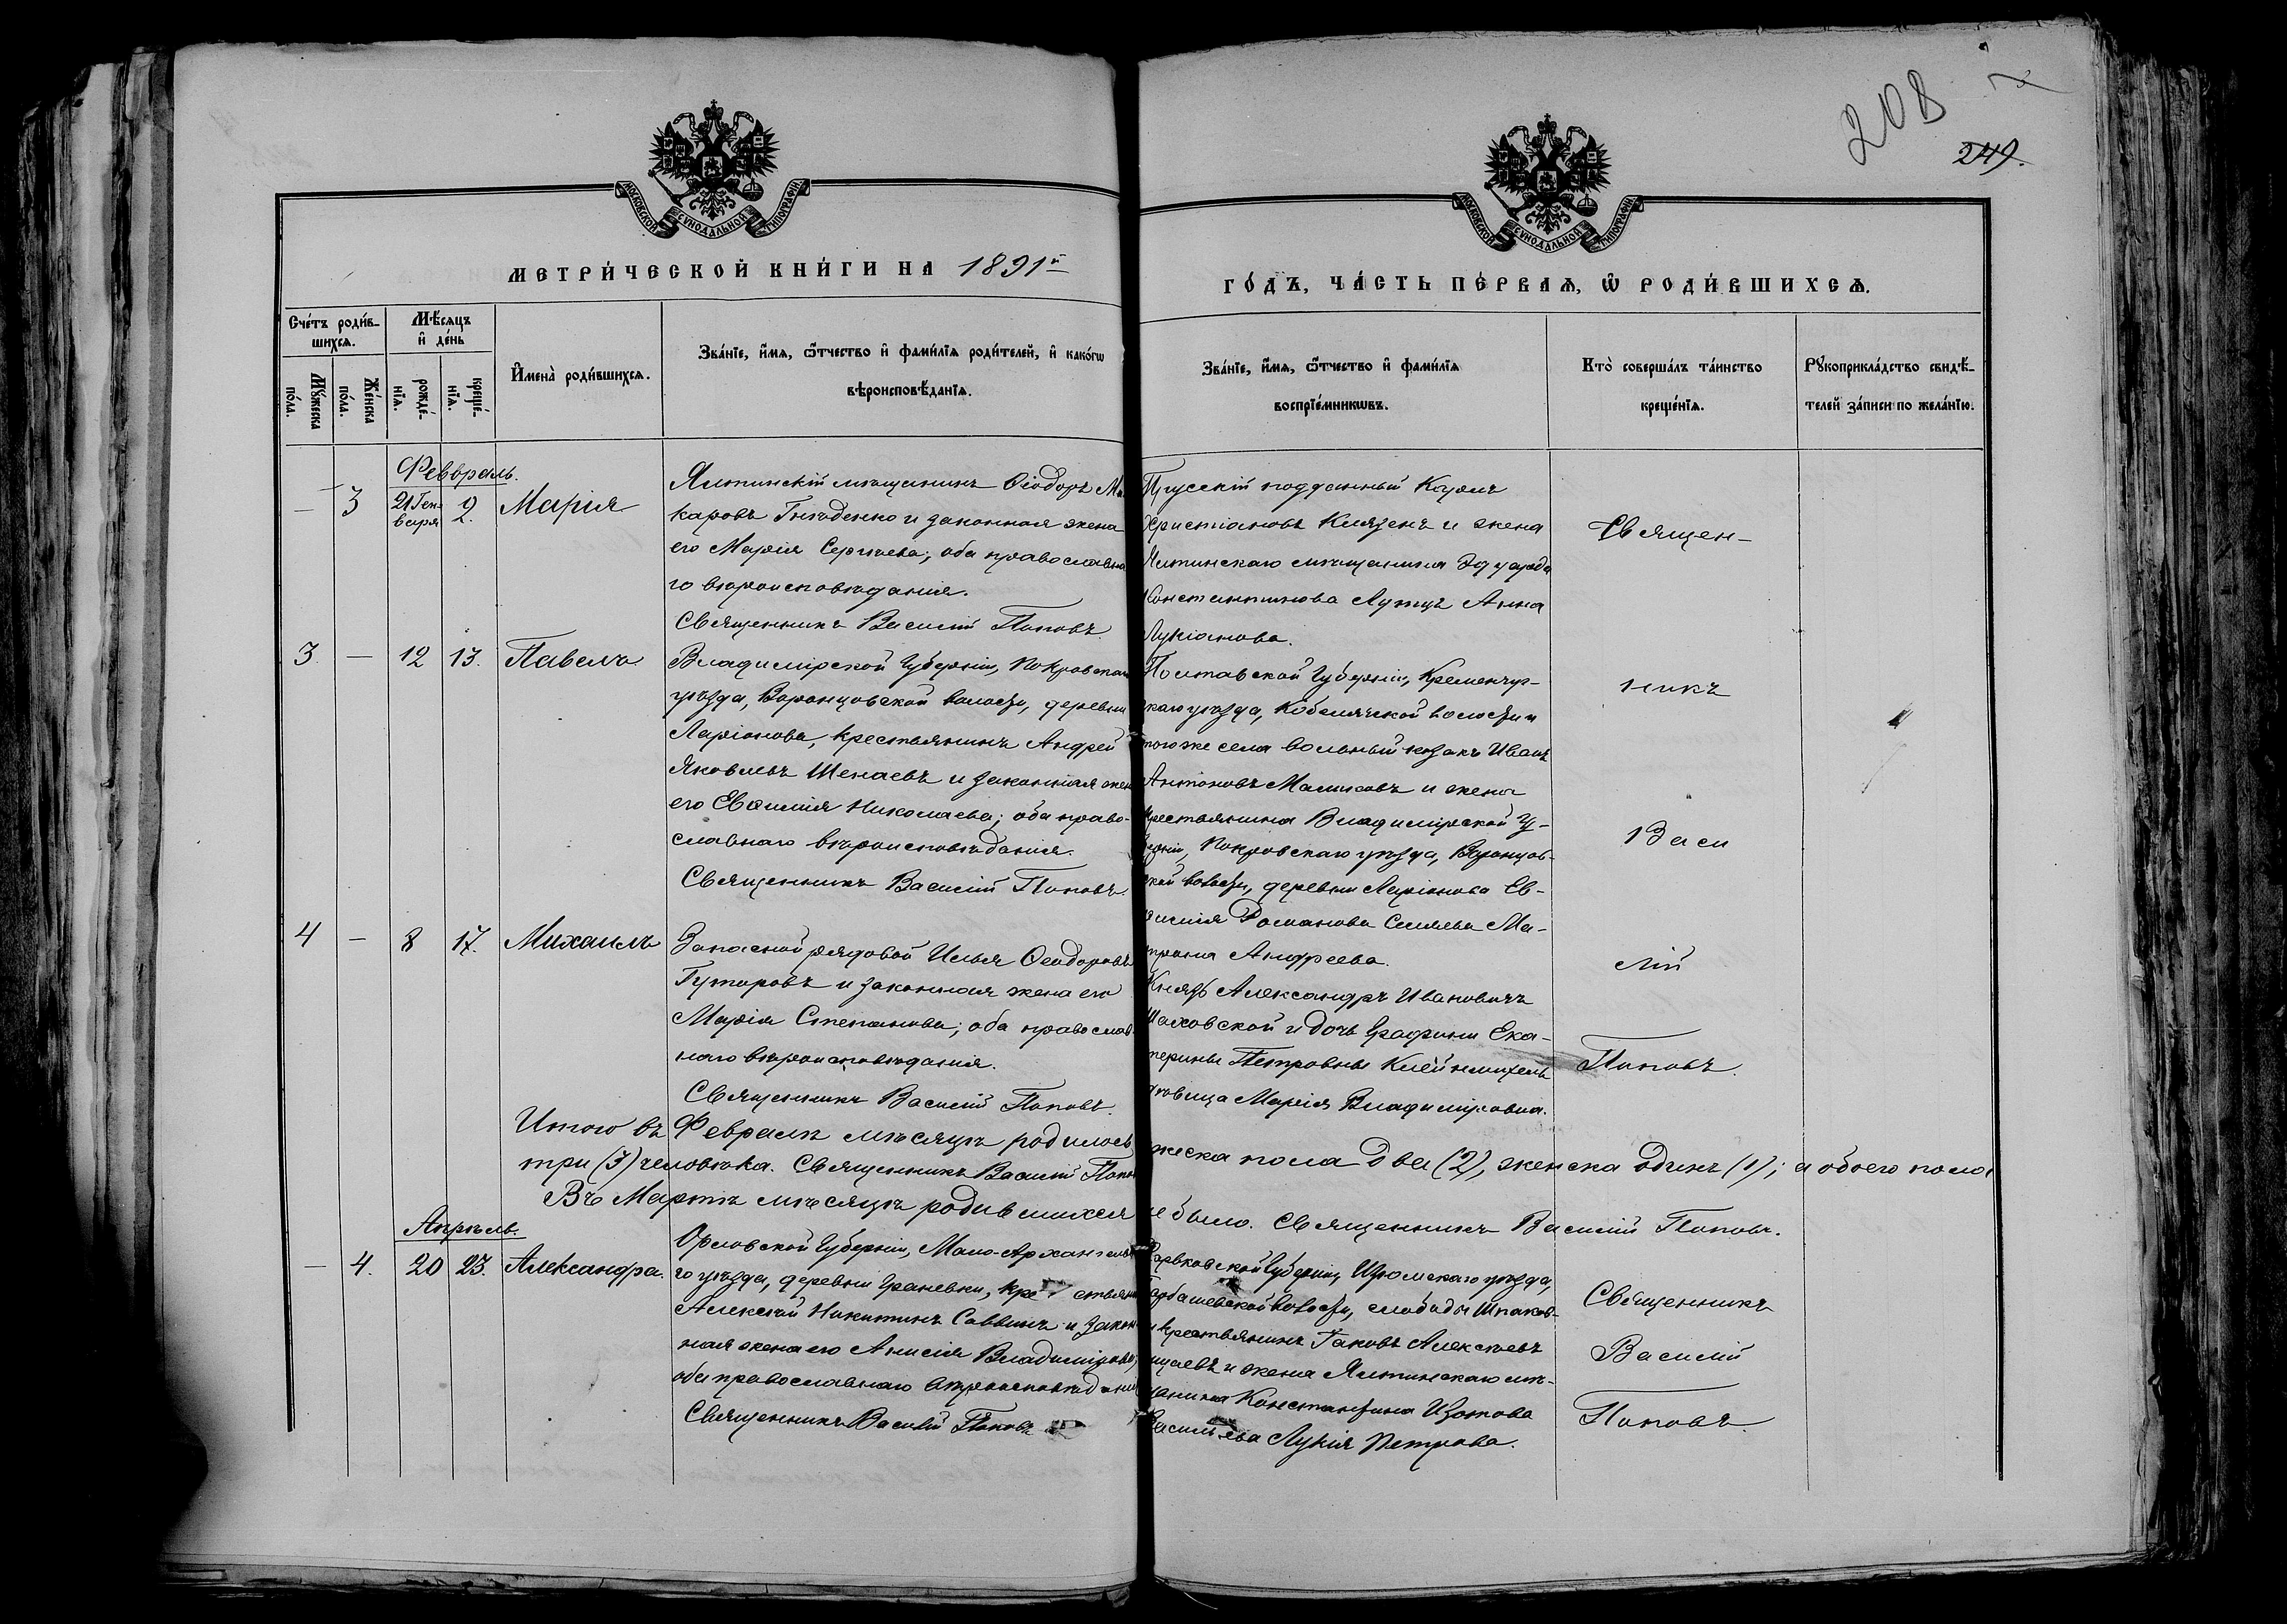 208
249.
МОСКОВСКОЙ СѴНОДАЛЬНОЙ ТИПОГРАФІИ
МОСКОВСКОЙ СѴНОДАЛЬНОЙ ТИПОГРАФІИ
МЕТРИ́ЧЕСКОЙ КНИ́ГИ НА 1891й
ГО́ДЪ, ЧА́СТЬ ПЕ́РВАѦ, Ѡ РОДИ́ВШИХСѦ.
Сче́тъ роди́в-
шихсѧ.
Мѣ́сяцъ
и҆ де́нь
Мꙋ́жеска
по́ла.
Же́нска
по́ла.
рожде́-
нїѧ.
креще́-
нїѧ.
И҆мена̀ роди́вшихсѧ.
Зва́нїе, и҆́мѧ, ѻ҆́тчество и҆ фами́лїѧ роди́телей, и҆ како́гѡ
вѣроисповѣ́данїѧ.
Зва́нїе, и҆́мѧ, ѻ҆́тчество и҆ фами́лїѧ
воспрїе́мникѡвъ.
Кто̀ соверша́лъ та́инство
креще́нїѧ.
Рꙋкоприкла́дство свидѣ́-
телей за́писи по жела́нїю.
Февраль.
— 3 21 Ген-
варя 2. Марія
Ялтинскій мѣщанинъ Ѳеодоръ Ма
каровъ Гнѣденко и законная жена
его Марія Сергѣева; оба православна
го вѣроисповѣданія.
Священникъ Василій Поповъ
Прусскій подданный Карлъ
Христіановъ Клязенъ и жена
Ялтинскаго мѣщанина Эдуарда
Константинова Лутцъ Анна
Лукіанова.
Священ-
3 — 12 13. Павелъ
Владимірской Губерніи, Покровскаго
уѣзда, Воронцовской волости, деревни
Ларіонова, крестьянинъ Андрей
Яковлевъ Шенаевъ и законная жена
его Евѳимія Николаева; оба право-
славнаго вѣроисповѣданія.
Священникъ Василій Поповъ.
Полтавской Губерніи, Кременчуг-
скаго уѣзда, Кобелячской волости и
того же села вольный козакъ Иванъ
Антоновъ Малиховъ и жена
крестьянина Владимірской Гу-
берніи, Покровскаго уѣзда, Воронцов-
ской волости, деревни Ларіонова Ев-
ѳимія Романова Матрона Андреева.
никъ
Васи
4 — 8 17. Михаилъ
Запасной рядовой Илья Ѳеодоровъ
Гуторовъ и законная жена его
Марія Степанова; оба православ
наго вѣроисповѣданія.
Священникъ Василій Поповъ.
Князь Александръ Ивановичъ
Шаховской и дочь Графини Ека-
терины Петровны Клейнмихель
дѣвица Марія Владиміровна.
лій
Поповъ.
Итого въ Февралѣ мѣсяцѣ родилось
жеска пола два (2), женска одинъ (1); а обоего пола
три (3) человѣка. Священникъ Василій Попов
Въ Мартѣ мѣсяцѣ родившихся
не было. Священникъ Василій Поповъ.
Апрѣль.
— 4. 20 23. Александра.
Орловской Губерніи, Мало-Архангельска
го уѣзда, деревни Граневки, крестьянин
Алексѣй Никитинъ Саввинъ и закон
ная жена его Анисія Владимірова;
оба православнаго вѣроисповѣданія
Священникъ Василій Поповъ
Харьковской Губерніи, Изюмскаго уѣзда,
волости, слободы
крестьянинъ Іаковъ Алексѣевъ
и жена Ялтинскаго мѣ-
щанина Константина Изотова
Васильева Лукія Петрова.
Священникъ
Василій
Поповъ